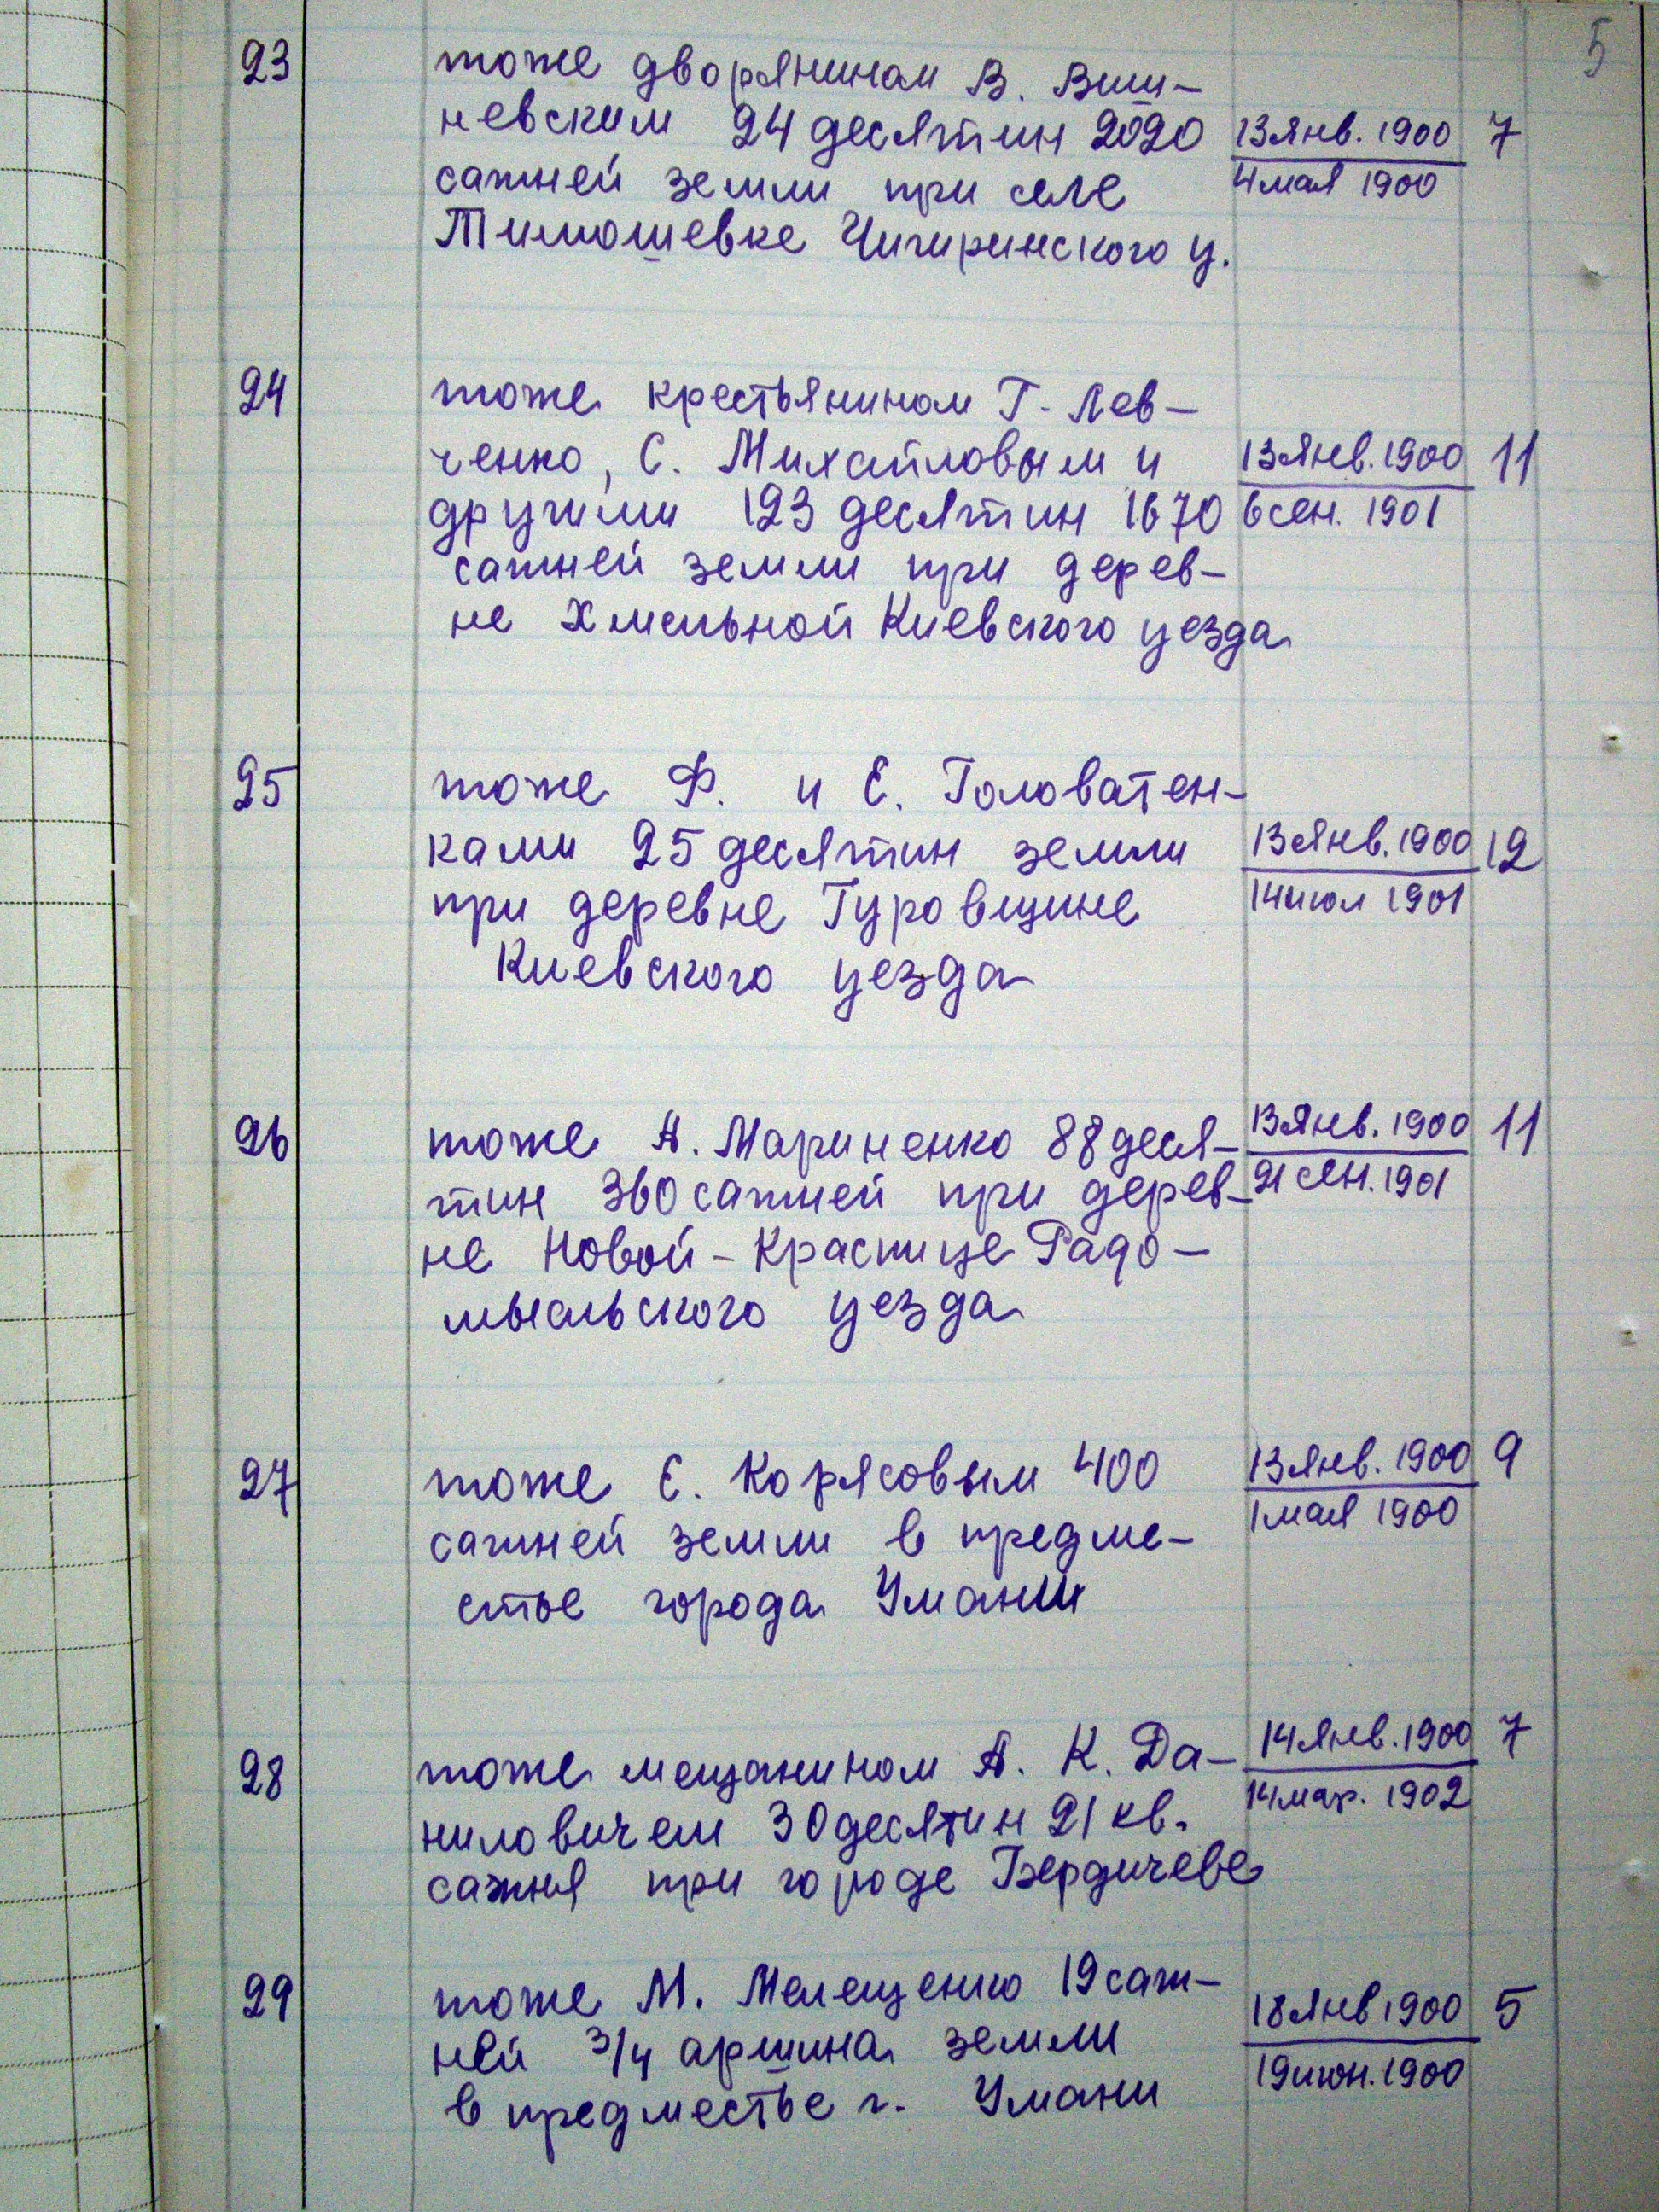 5
23 тоже дворянином В. Виш-
невским 24 десятин 2020 13 янв. 1900 7
сажней земли при селе 4 мая 1900
Тимошевке Чигиринского у.
24 тоже крестьянином Г. Лев-
ченко, С. Михайловым и 13 янв. 1900 11
другими 123 десятин 1670 6 сен. 1901
сажней земли при дерев-
не Хмельной Киевского уезда
25 тоже Ф. и Е. Головатен-
ками 25 десятин земли 13 янв. 1900 12
при деревне Гуровщине 14 июл 1901
Киевского уезда
26 тоже А. Мариненко 88 деся- 13 янв. 1900 11
тин 360 сажней при дерев- 21 сен. 1901
не Новой-Краснице Радо-
мысльского уезда
27 тоже Е. Корясовым 400 13 янв. 1900 9
сажней земли в предме- 1 мая 1900
стье города Умани
28 тоже мещанином А. К. Да- 14 янв. 1900 7
ниловичем 30 десятин 21 кв. 14 мар. 1902
сажня при городе Бердичеве
29 тоже М. Мелещенко 19 саж-
ней 3/4 аршина земли 18 янв 1900 5
в предместье г. Умани 19 июн. 1900